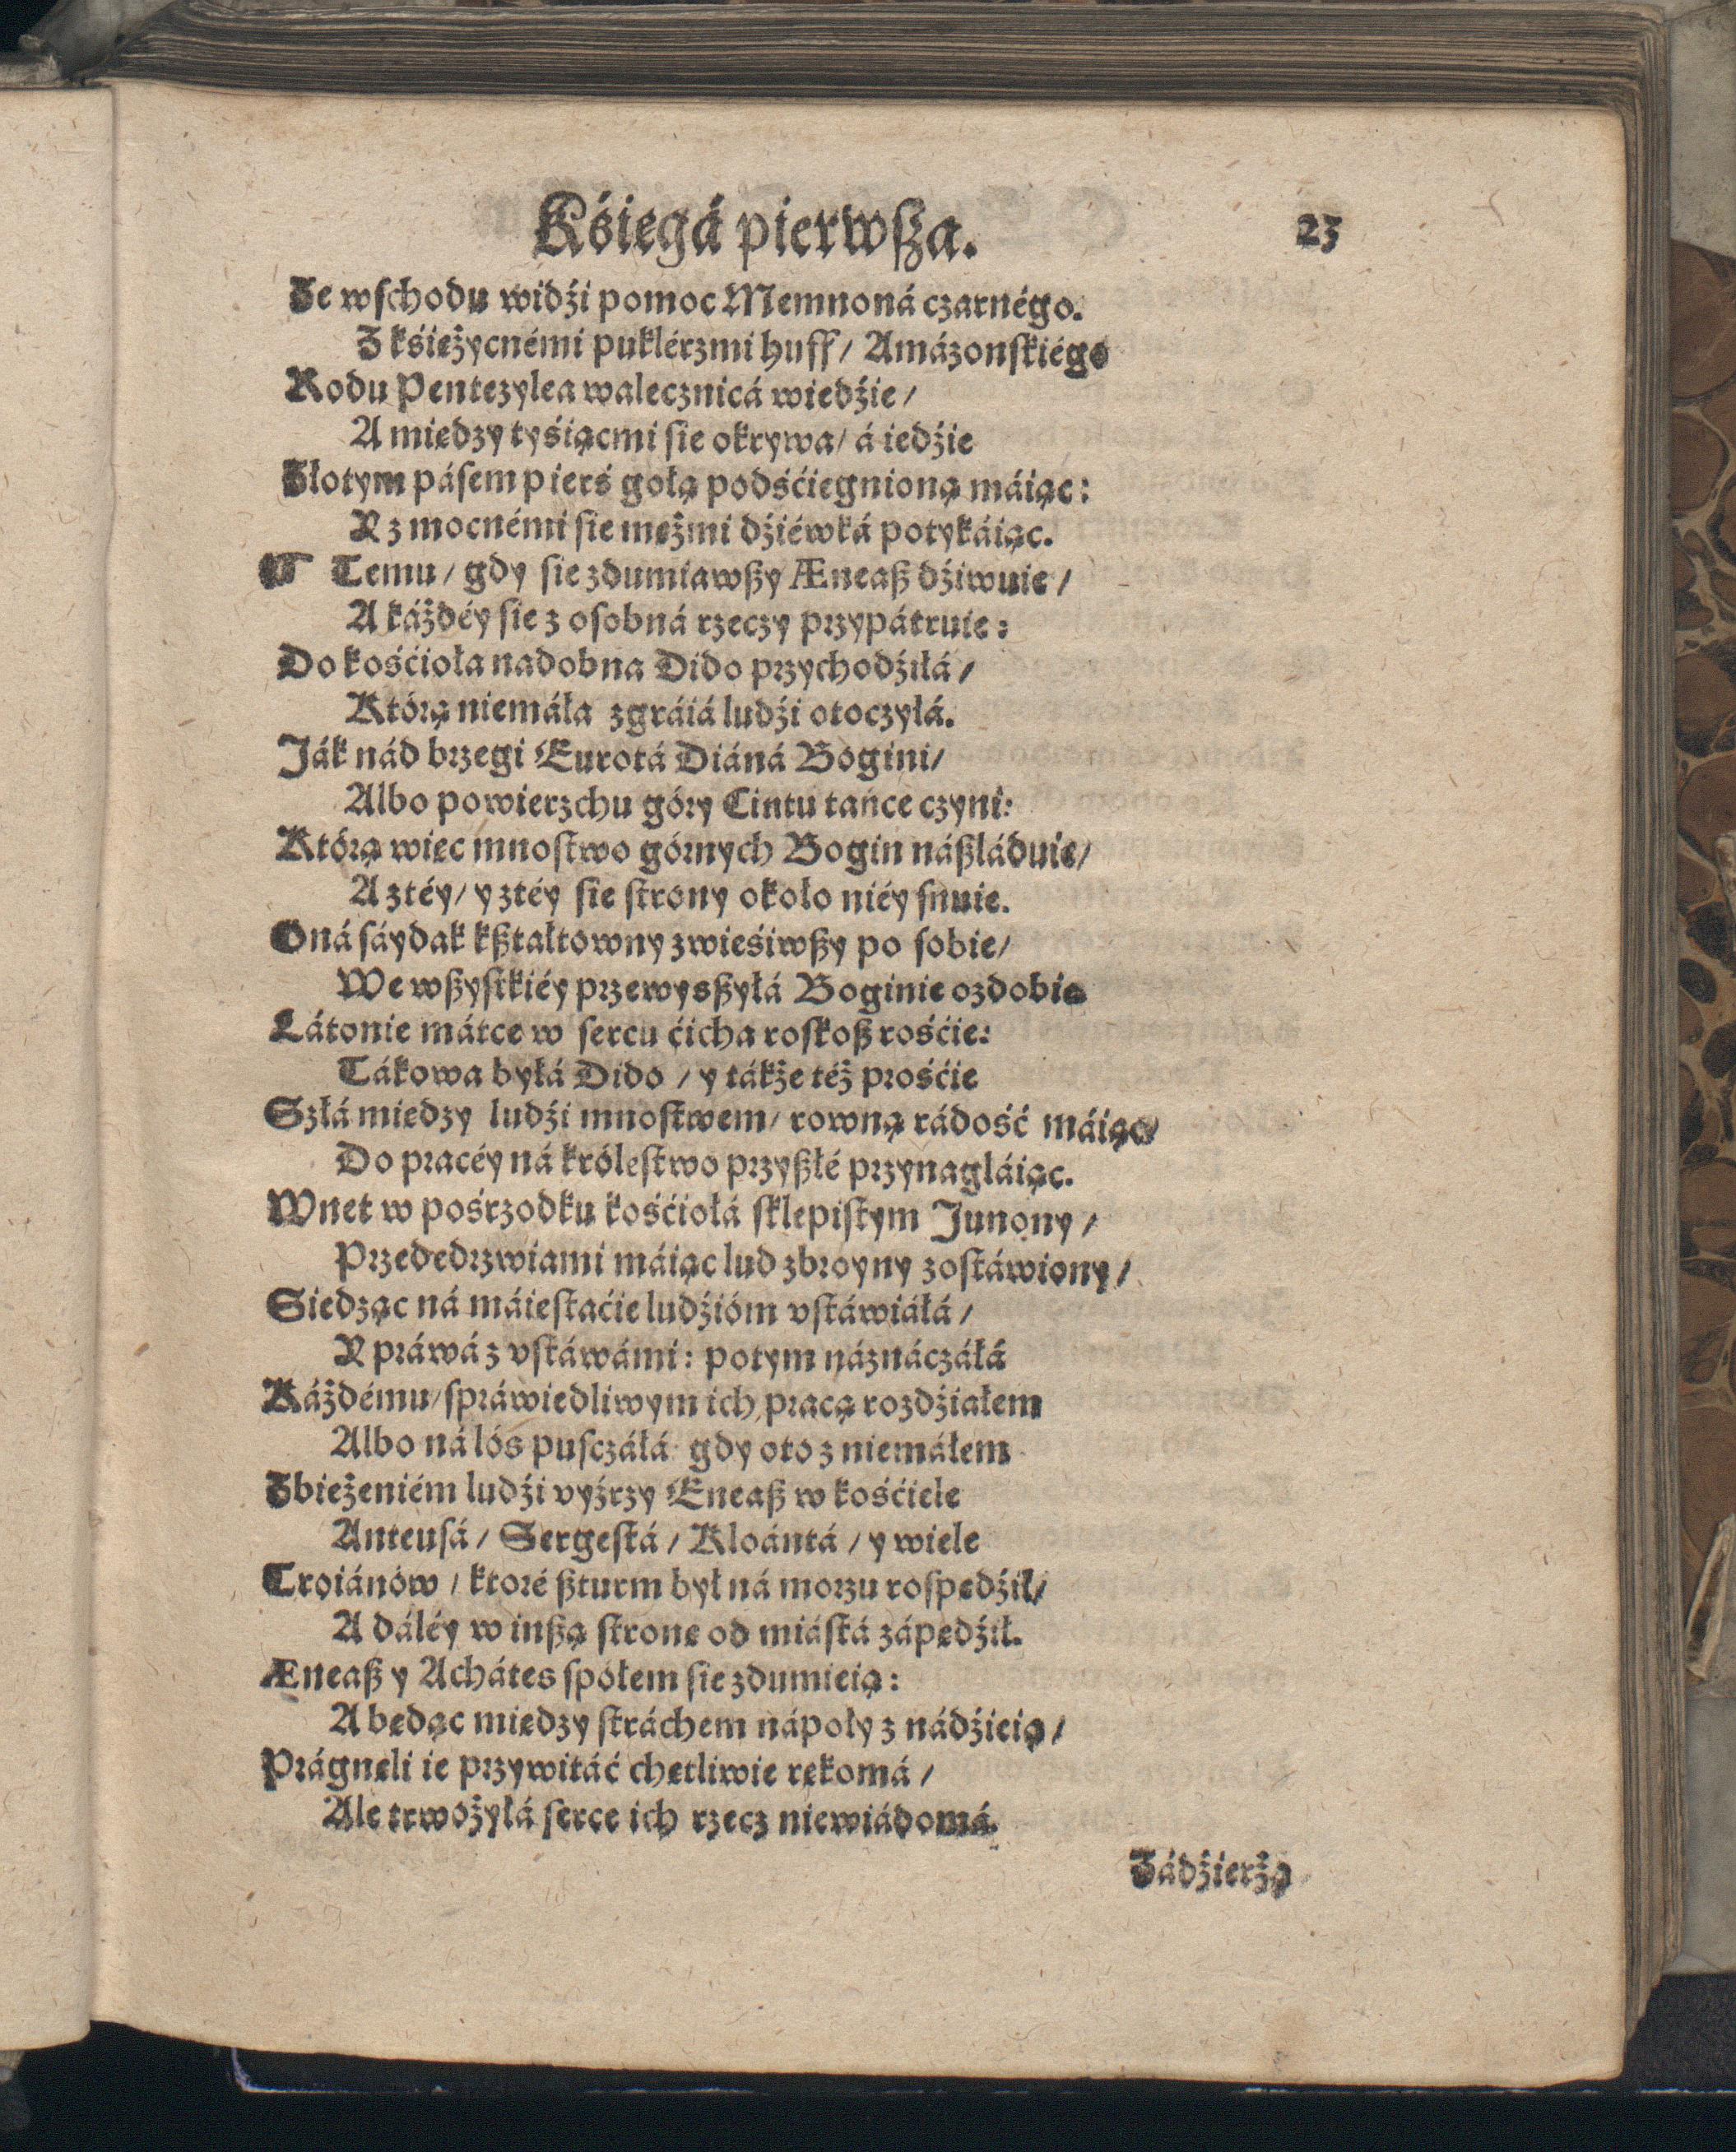 Kśięgá pierwſza. 23
Ze wſchodu widźi pomoc Memnoná czarnégo.
Z kśiężycnémi puklérzmi huff / Amázonſkiégo
Rodu Pentezylea walecznicá wiedźie /
A miedzy tyśiącmi ſie okrywa / á iedźie
Złotym páſem pierś gołą podśćiegnioną máiąc:
Y z mocnémi ſie mężmi dźiéwká potykáiąc.
☞ Temu / gdy ſie zdumiawßy Æneaß dźiwuie /
A káżdéy ſie z oſobná rzeczy przypátruie:
Do kośćioła nadobna Dido przychodźiłá /
Którą niemáła zgráiá ludźi otoczyłá.
Ják nád brzegi Eurotá Diáná Bogini /
Albo powierzchu góry Cintu tańce czyni:
Którą więc mnoſtwo górnych Bogiń náßláduie /
A z téy / y z téy ſie ſtrony około niéy ſnuie.
Oná ſáydak kßtałtowny zwieśiwßy po ſobie /
We wßyſtkiéy przewysßyłá Boginie ozdobie
Látonie mátce w ſercu ćicha roſkoß rośćie:
Tákowa byłá Dido / y tákże téż prośćie
Szłá miedzy ludźi mnoſtwem / rowną rádość máiąc /
Do pracéy ná króleſtwo przyßłé przynagláiąc.
Wnet w pośrzodku kośćiołá ſklepiſtym Junony /
Przededrzwiami máiąc lud zbroyny zoſtáwiony /
Siedząc ná máieſtaćie ludźióm vſtáwiáłá /
Y práwá z vſtáwámi: potym náznáczáłá
Káżdému / ſpráwiedliwym ich pracą rozdźiałem
Albo ná lós puſczáłá gdy oto z niemáłem
Zbieżeniém ludźi vyźrzy Eneaß w kośćiele
Anteuſá / Sergeſtá / Kloántá / y wiele
Troiánów / ktoré ßturm był ná morzu roſpędźił /
A dáléy w inßą ſtronę od miáſtá zápędźił.
Æneaß y Achátes ſpółem ſie zdumieią:
A będąc miedzy ſtráchem nápoły z nádźieią /
Prágnęli ie przywitáć chętliwie rękomá /
Ale trwożyłá ſerce ich rzecz niewiádomá.
Zádźierżą